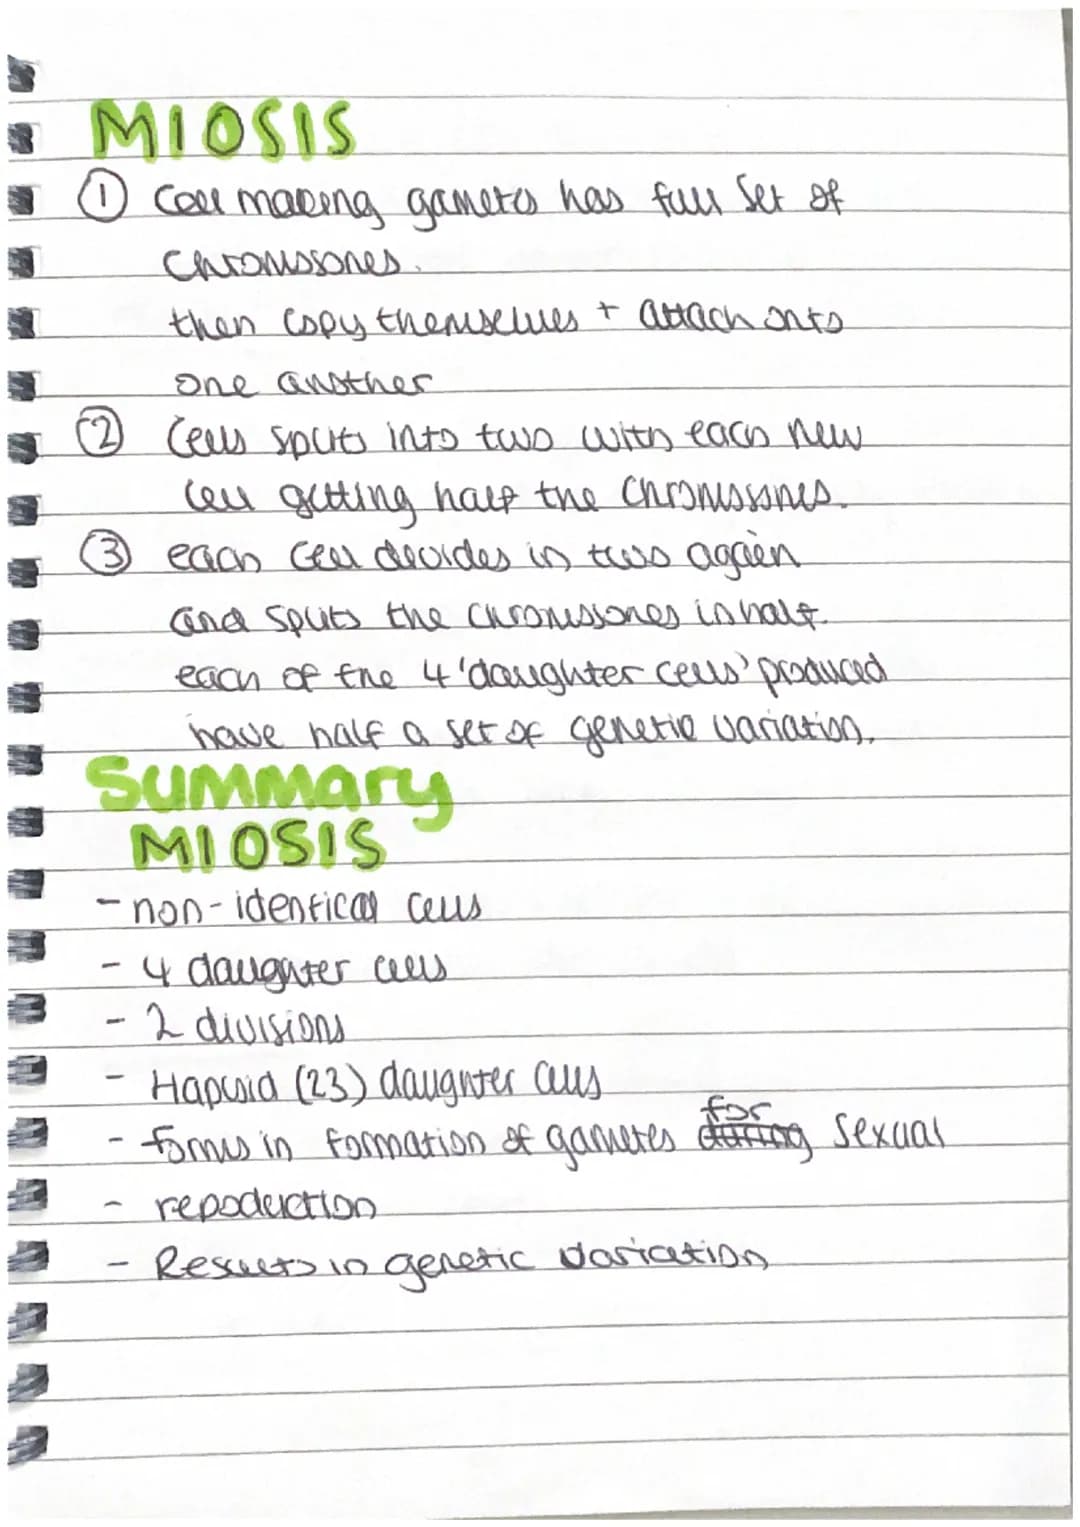 MIOSIS
① Cell making gametes has full set of
chromosones.
then copy themselves + attach onto
one another
② Cells splits into two with each new
cell getting half the chromosones.
③ each cell devides in two again
and splits the chromosones in half.
each of the 4 'daughter cells' produced
have half a set of genetic variation.
Summary
MIOSIS
- non-identical cells
- 4 daughter cells
- 2 divisions
- Haploid (23) daughter cells
- forms in formation of gametes for sexual
- repoduction
- Results in genetic variation